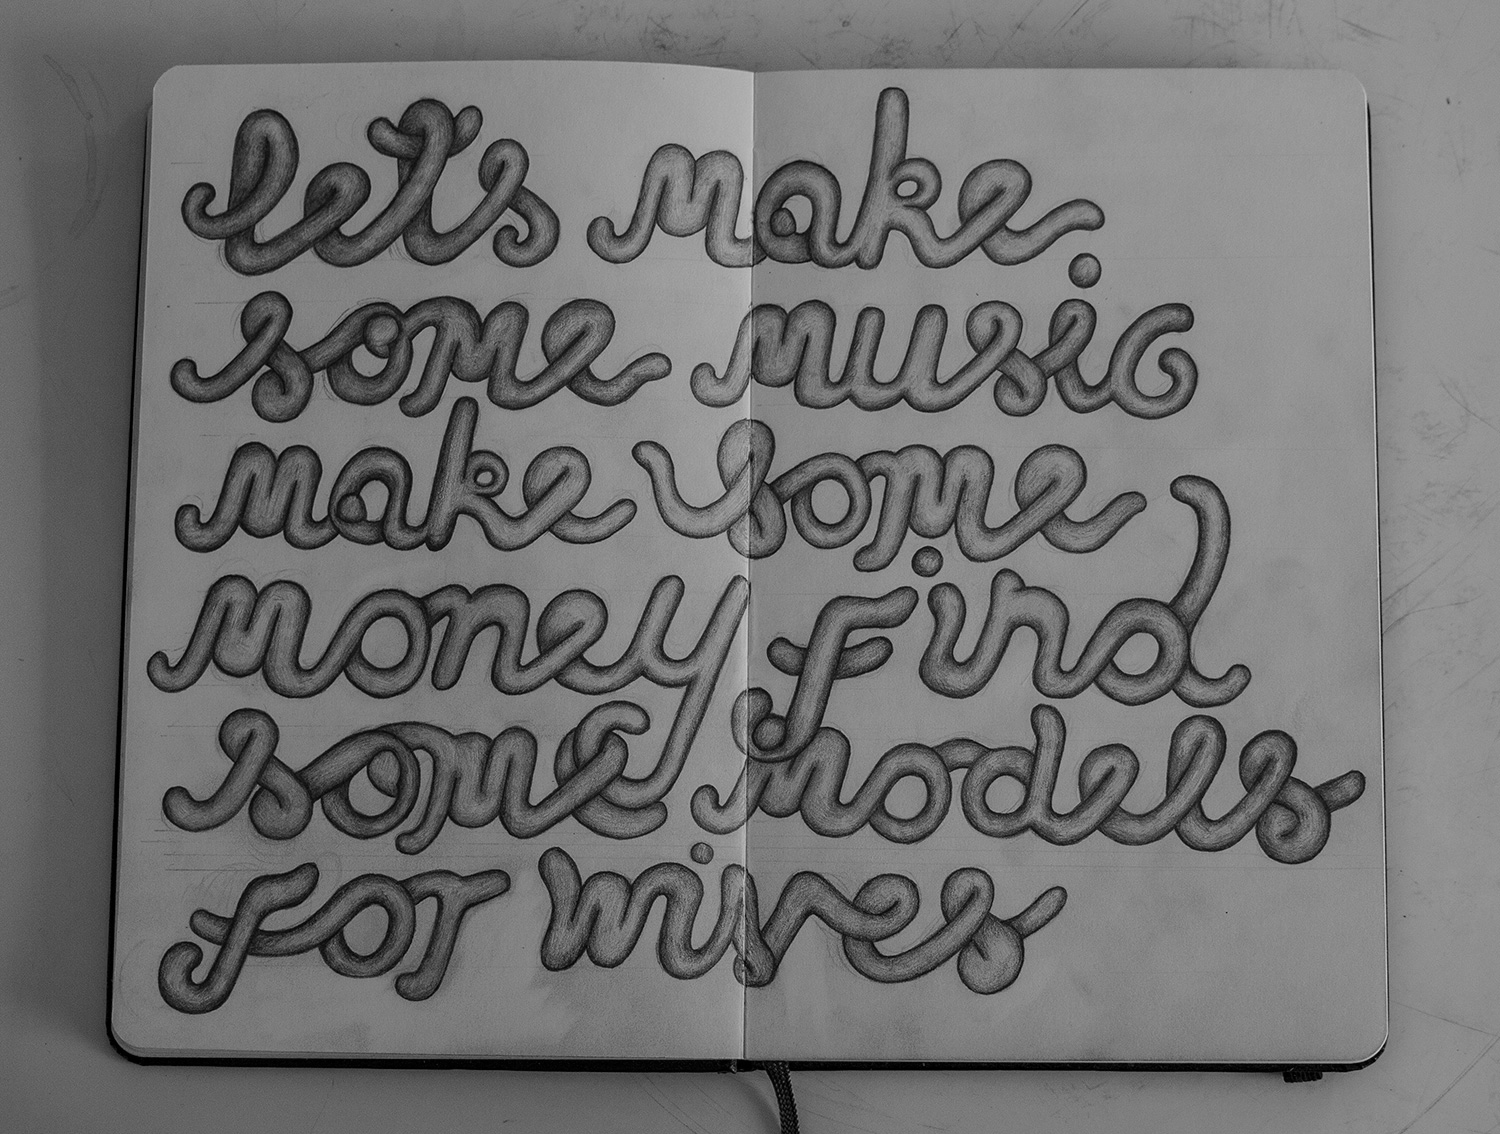 let's make
some music
make some
money find
some models
for wives